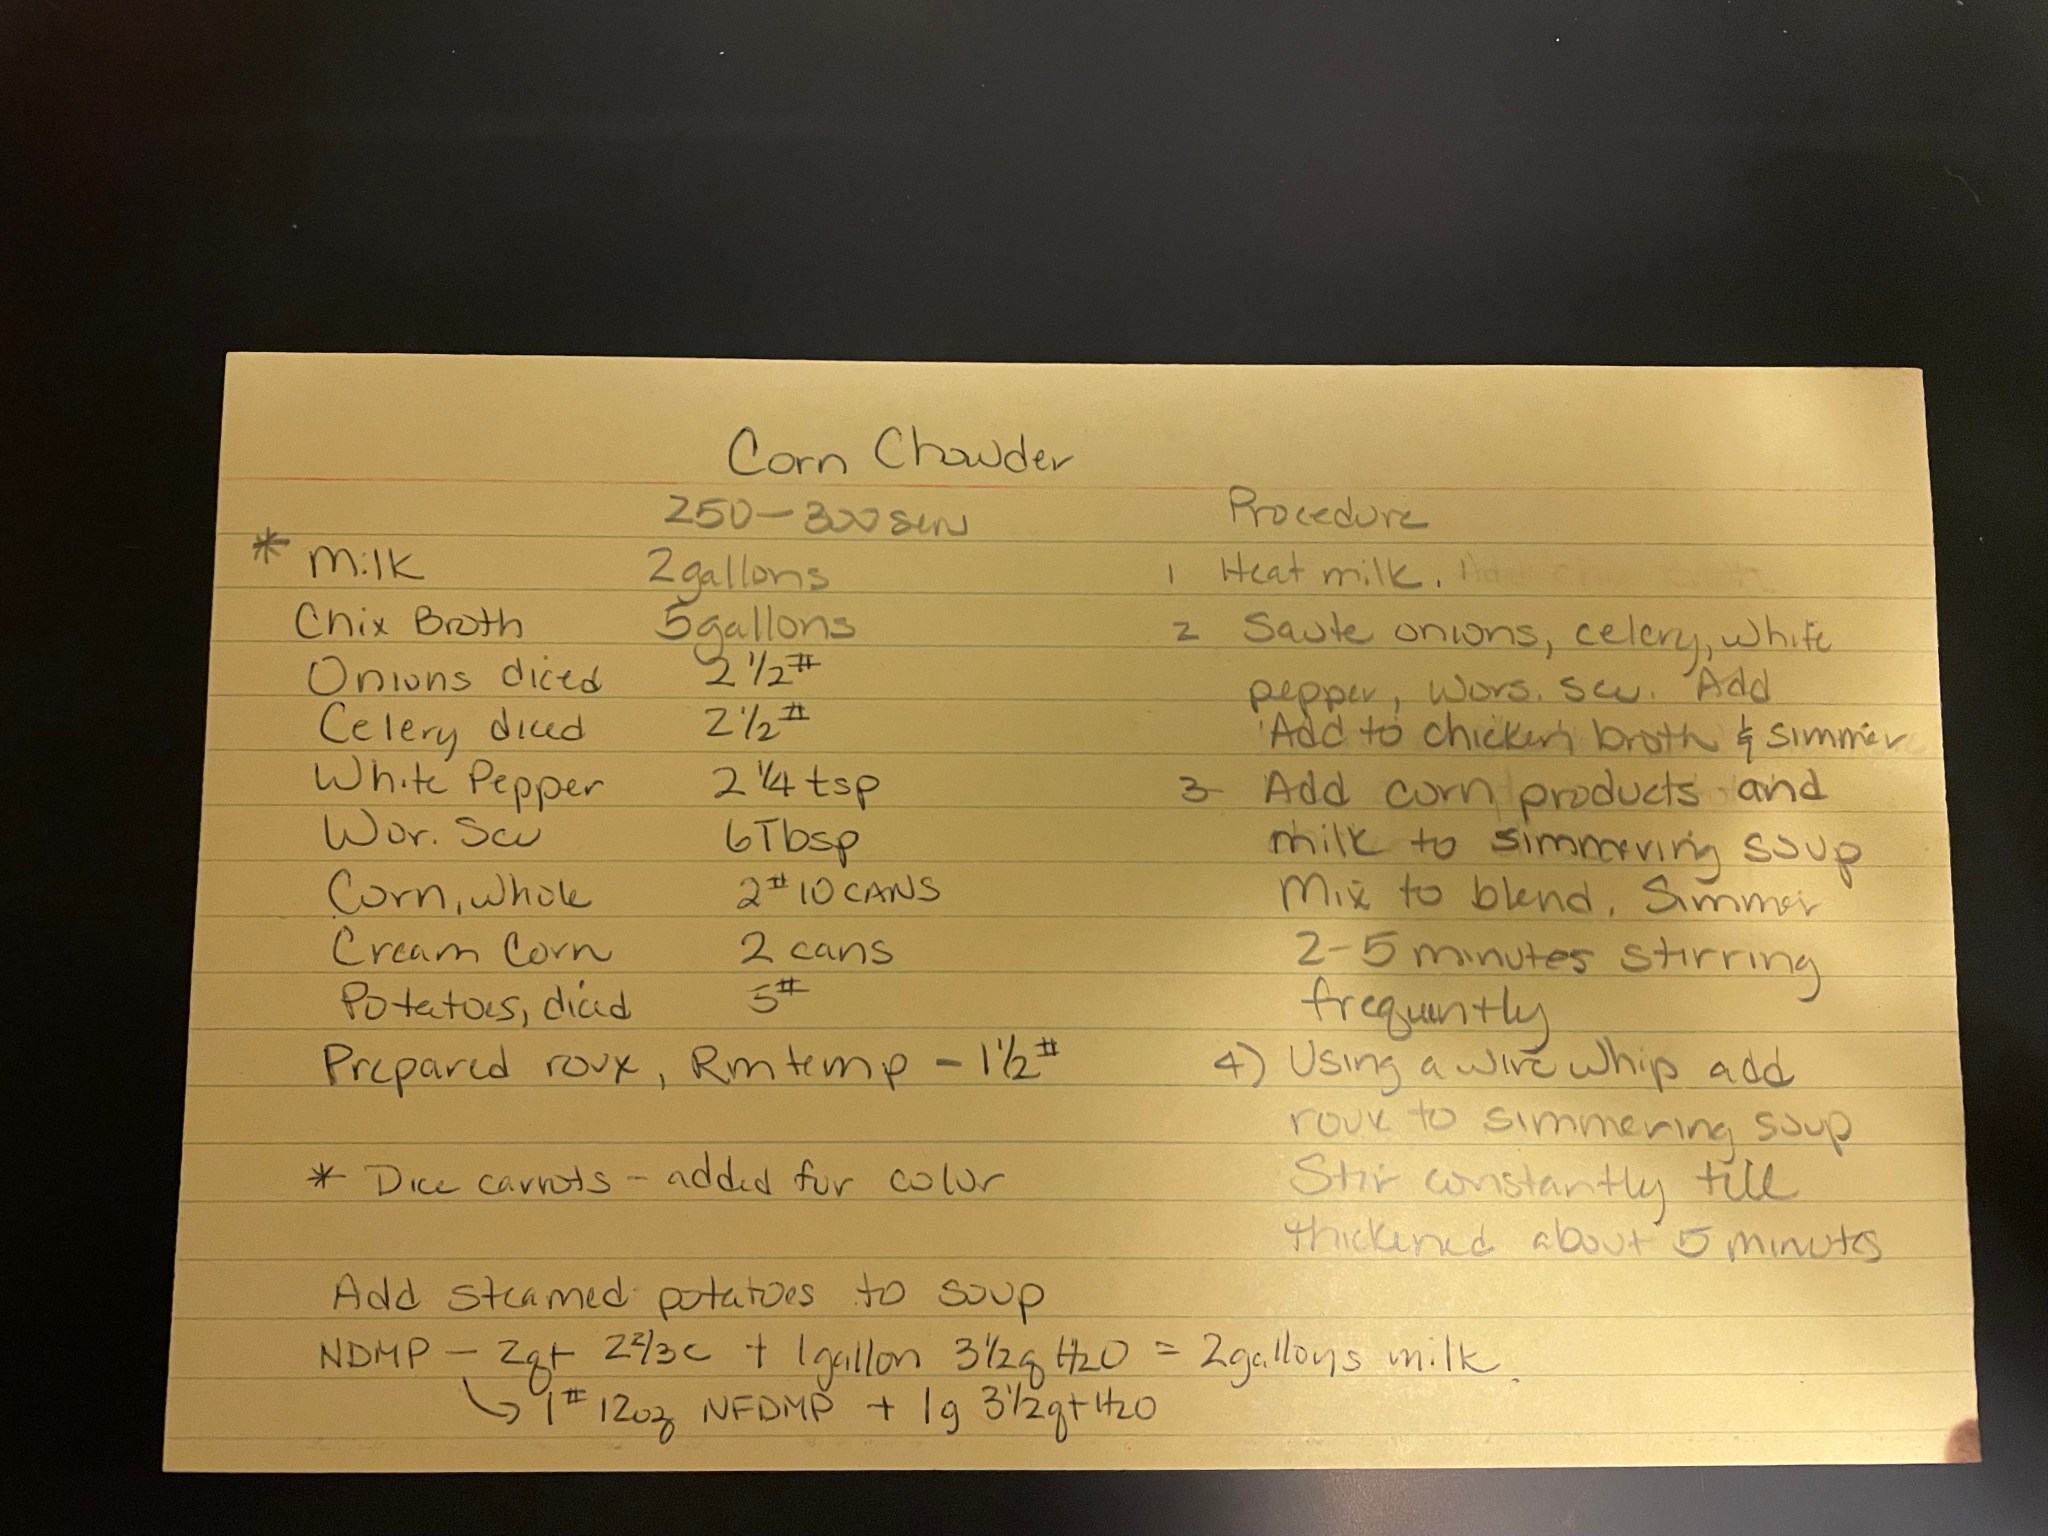 Corn Chowder
250-300 serv
* Milk 2 gallons
Chix Broth 5 gallons
Onions diced 2 1/2#
Celery diced 2 1/2#
White Pepper 2 1/4 tsp
Wor. Sce 6 Tbsp
Corn, whole 2 #10 CANS
Cream Corn 2 cans
Potatoes, diced 5#
Prepared roux, Rm temp - 1 1/2#
* Dice carrots - added for color
Add steamed potatoes to soup
NDMP - 2qt 2 2/3c + 1 gallon 3 1/2q H2O = 2 gallons milk.
↳ 1# 12oz NFDMP + 1g 3 1/2qt H2O
Procedure
1 Heat milk.
2 Saute onions, celery, white
pepper, Wors. sce. Add
Add to chicken broth & simmer
3- Add corn products and
milk to simmering soup
Mix to blend. Simmer
2-5 minutes stirring
frequently
4) Using a wire whip add
roux to simmering soup
Stir constantly till
thickened about 5 minutes